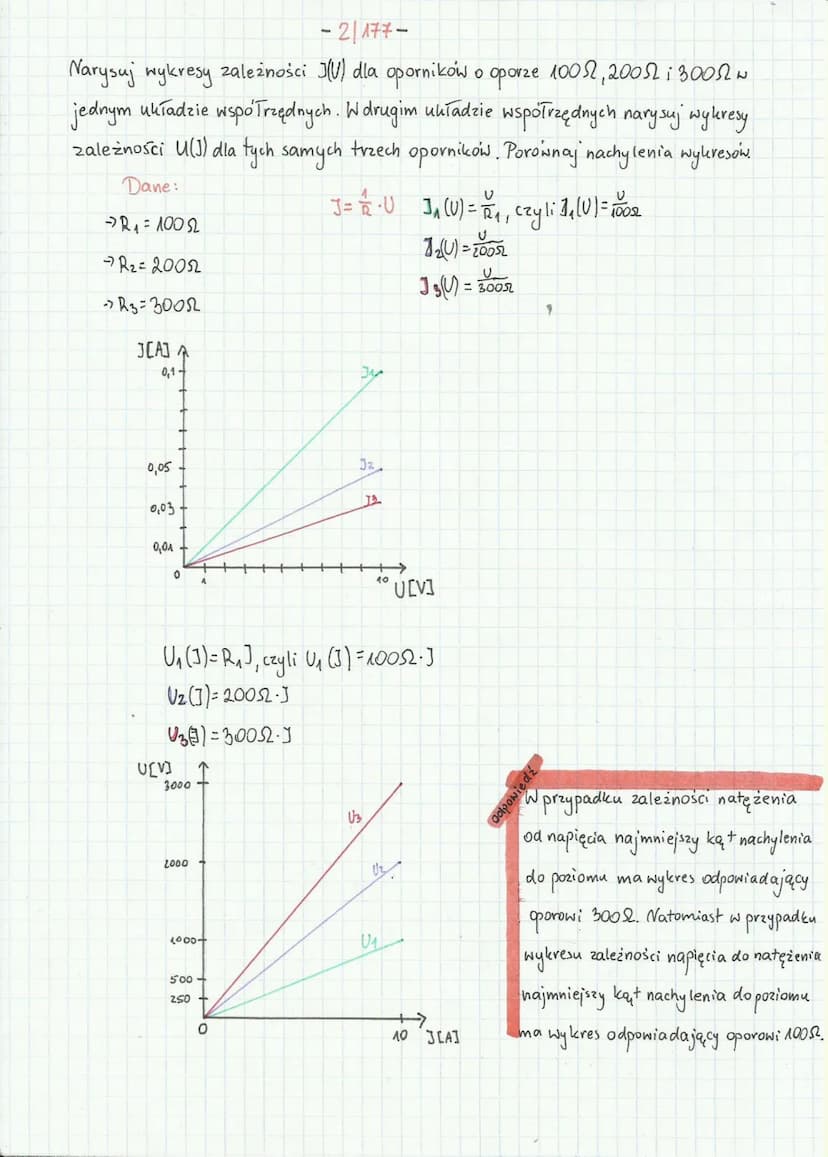 - 2/177 -
Narysuj wykresy zależności J(U) dla oporników o oporze 100Ω, 200Ω i 300Ω w
jednym układzie współrzędnych. W drugim układzie współrzędnych narysuj wykresy
zależności U(J) dla tych samych trzech oporników. Porównaj nachylenia wykresów.
Dane:
→ R1 = 100Ω
→ R2 = 200Ω
→ R3 = 300Ω
J = 1/R · U
J1(U) = U/R1, czyli J1(U) = U/100Ω
J2(U) = U/200Ω
J3(U) = U/300Ω
J[A]
0,1
0,05
0,03
0,01
0
1
10
U[V]
J1
J2
J3
U1(J) = R1J, czyli U1(J) = 100Ω · J
U2(J) = 200Ω · J
U3(J) = 300Ω · J
U[V]
3000
2000
1000
500
250
0
10
J[A]
U3
U2
U1
odpowiedź
W przypadku zależności natężenia
od napięcia najmniejszy kąt nachylenia
do poziomu ma wykres odpowiadający
oporowi 300Ω. Natomiast w przypadku
wykresu zależności napięcia do natężenia
najmniejszy kąt nachylenia do poziomu
ma wykres odpowiadający oporowi 100Ω.